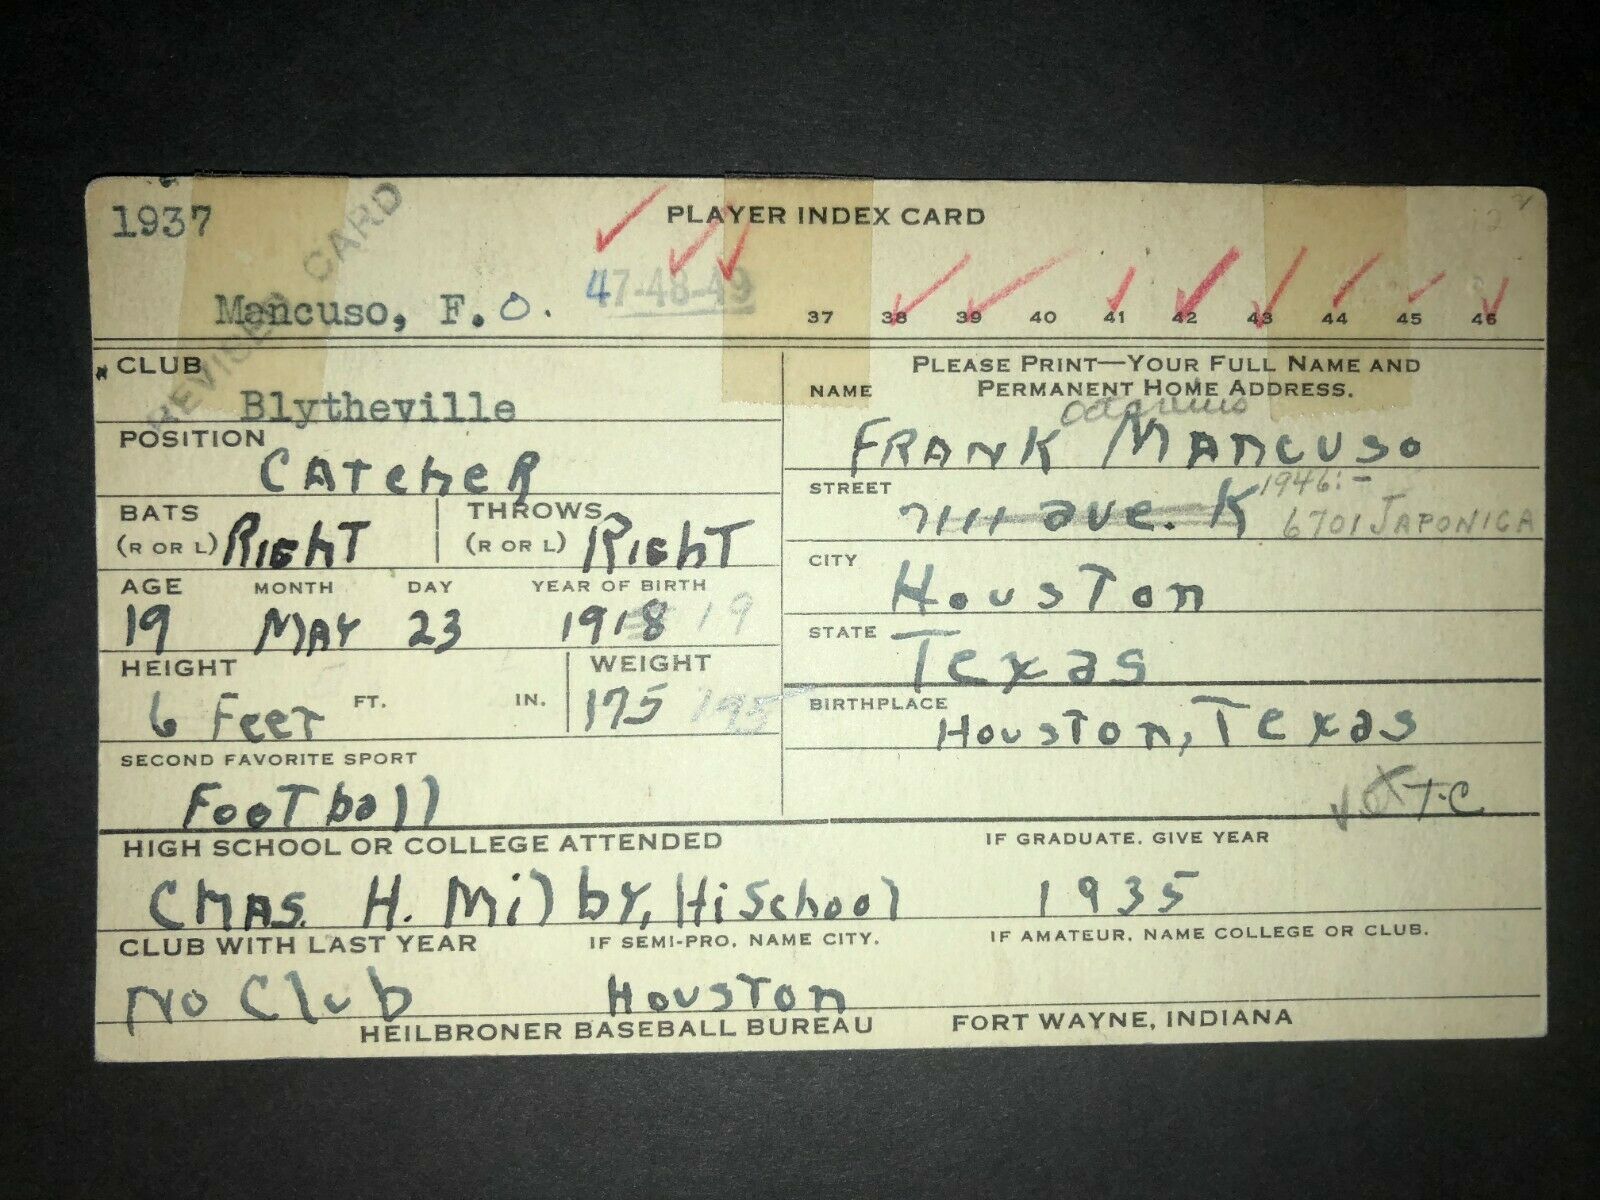 1937
PLAYER INDEX CARD
Mancuso, F. O.
47-48-49
37 38 39 40 41 42 43 44 45 46
CARD
CLUB
Blytheville
POSITION
CATCHER
BATS (R OR L) RIGHT THROWS (R OR L) RIGHT
AGE MONTH DAY YEAR OF BIRTH
19 MAY 23 1918 19
HEIGHT WEIGHT
6 FeeT FT. IN. 175 195
SECOND FAVORITE SPORT
FooTball
PLEASE PRINT—YOUR FULL NAME AND
NAME PERMANENT HOME ADDRESS.
FRANK MANCUSO
STREET 1946:-
7111 ave. K 6701 JAPONICA
CITY
HousTon
STATE
Texas
BIRTHPLACE
HousTon, Texas
T-C
HIGH SCHOOL OR COLLEGE ATTENDED IF GRADUATE. GIVE YEAR
CHAS. H. Milby, Hi School 1935
CLUB WITH LAST YEAR IF SEMI-PRO. NAME CITY. IF AMATEUR. NAME COLLEGE OR CLUB.
No Club HousTon
HEILBRONER BASEBALL BUREAU FORT WAYNE, INDIANA